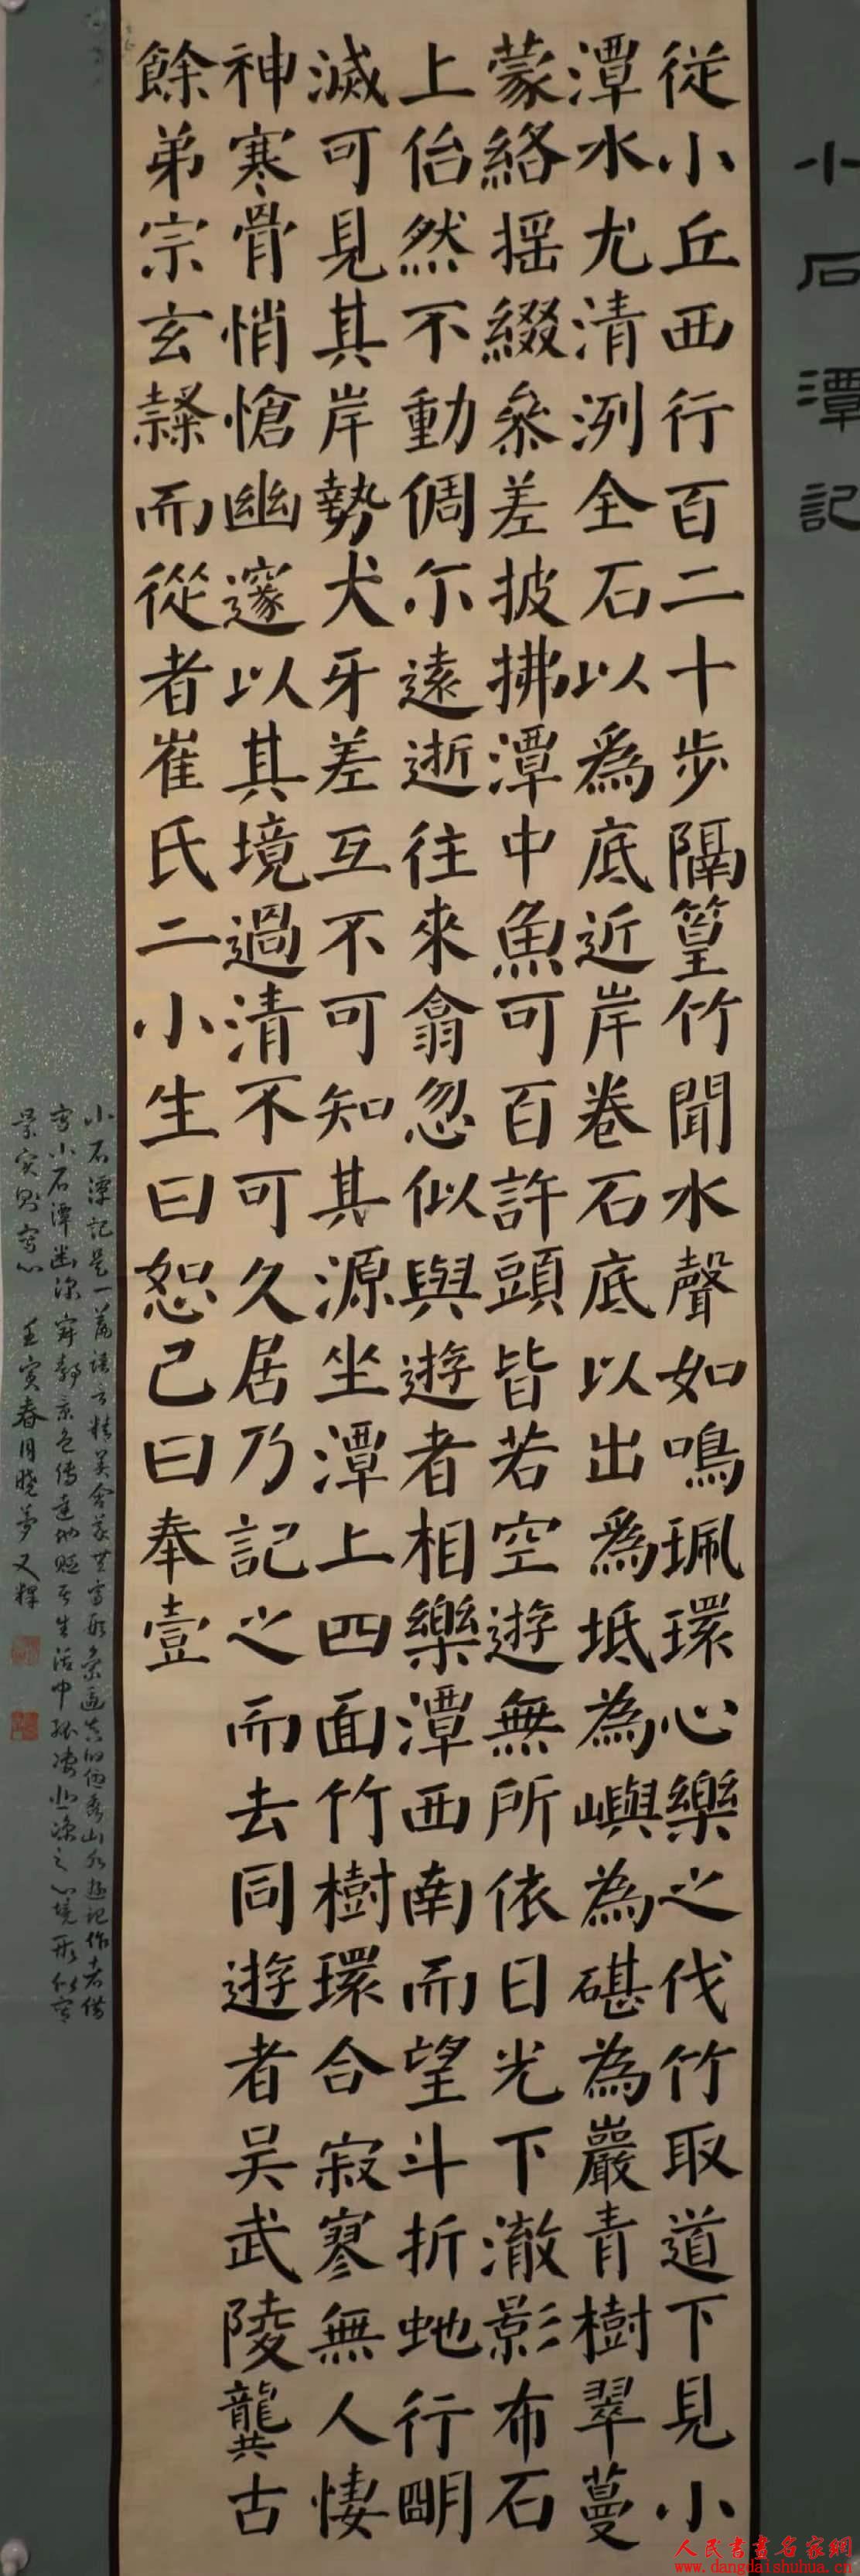 小石潭記
從小丘西行百二十步隔篁竹聞水聲如鳴珮環心樂之伐竹取道下見小
潭水尤清洌全石以為底近岸卷石底以出為坻為嶼為嵁為巖青樹翠蔓
蒙絡摇綴參差披拂潭中魚可百許頭皆若空遊無所依日光下澈影布石
上佁然不動俶尔遠逝往來翕忽似與遊者相樂潭西南而望斗折虵行明
滅可見其岸勢犬牙差互不可知其源坐潭上四面竹樹環合寂寥無人悽
神寒骨悄愴幽邃以其境過清不可久居乃記之而去同遊者吴武陵龔古
餘弟宗玄隸而從者崔氏二小生曰恕己曰奉壹
小石潭記是一篇語言精美含義豐富形象逼真的優秀山水遊記作者借
寫小石潭幽深寂静景色傳達他貶居生活中孤凄悲凉之心境形似寫
景实则寫心 壬寅春月曉夢又釋
人民书畫名家網
www.dangdaishuhua.cn